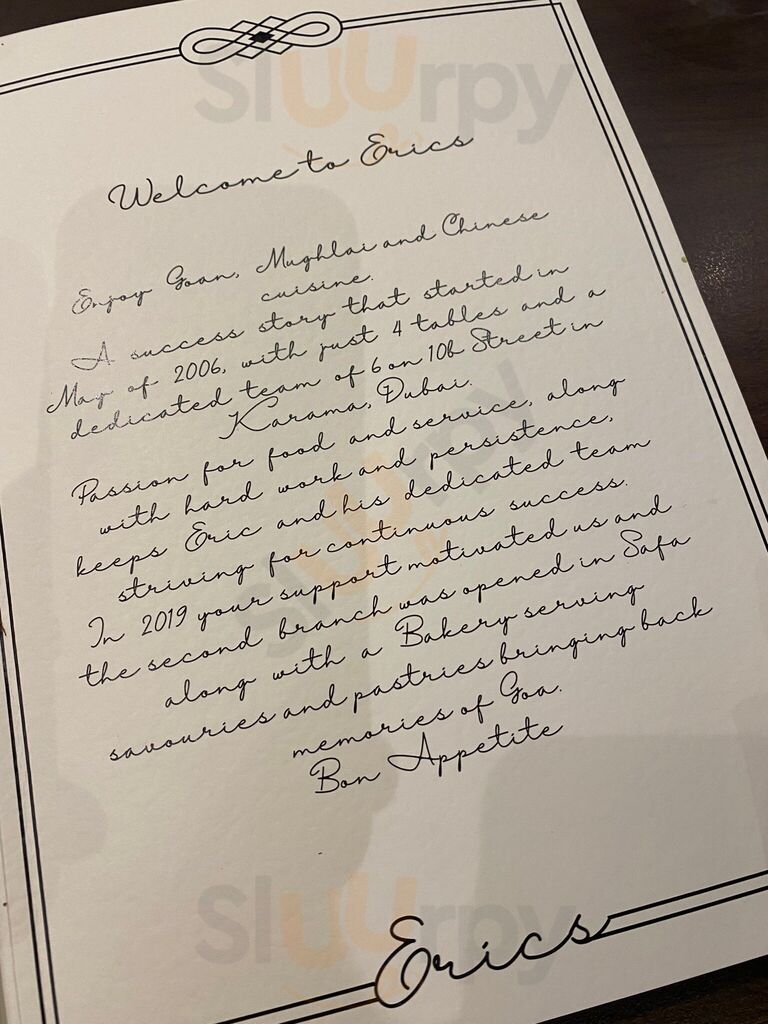 Sluurpy
Welcome to Erics
Enjoy Goan, Mughlai and Chinese
cuisine.
A success story that started in
May of 2006, with just 4 tables and a
dedicated team of 6 on 10b Street in
Karama, Dubai.
Passion for food and service, along
with hard work and persistence,
keeps Eric and his dedicated team
striving for continuous success.
In 2019 your support motivated us and
the second branch was opened in Safa
along with a Bakery serving
savouries and pastries bringing back
memories of Goa.
Bon Appetite
Sluurpy
Sluurpy
Erics